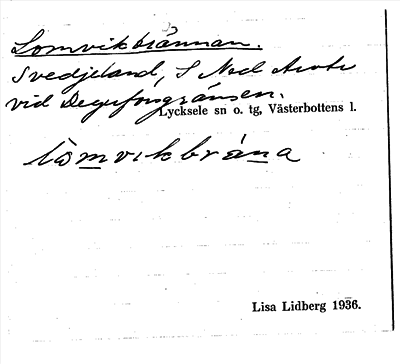 Lomvikbrännan.
Svedjeland, S Ned
vid Degerforsgränsen.
Lycksele sn o. tg, Västerbottens l.
lòmvıkbrána
Lisa Lidberg 1936.